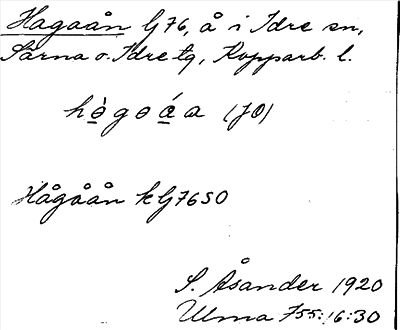 Hagaån G 76, å i Idre sn,
Särna o. Idre tg, Kopparb. l.
hògoáa (JO)
Hågåån kG76SO
S. Åsander 1920
Ulma 755:16:30